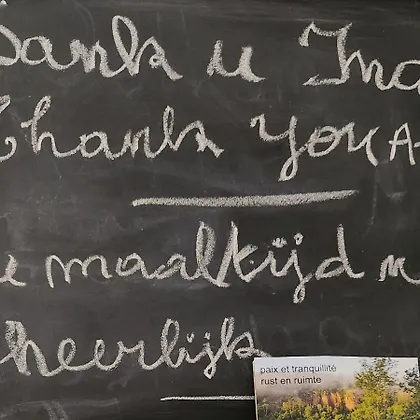 Dank u Ina
Thank you A
e maaltijd w
heerlijk
paix et tranquillité
rust en ruimte